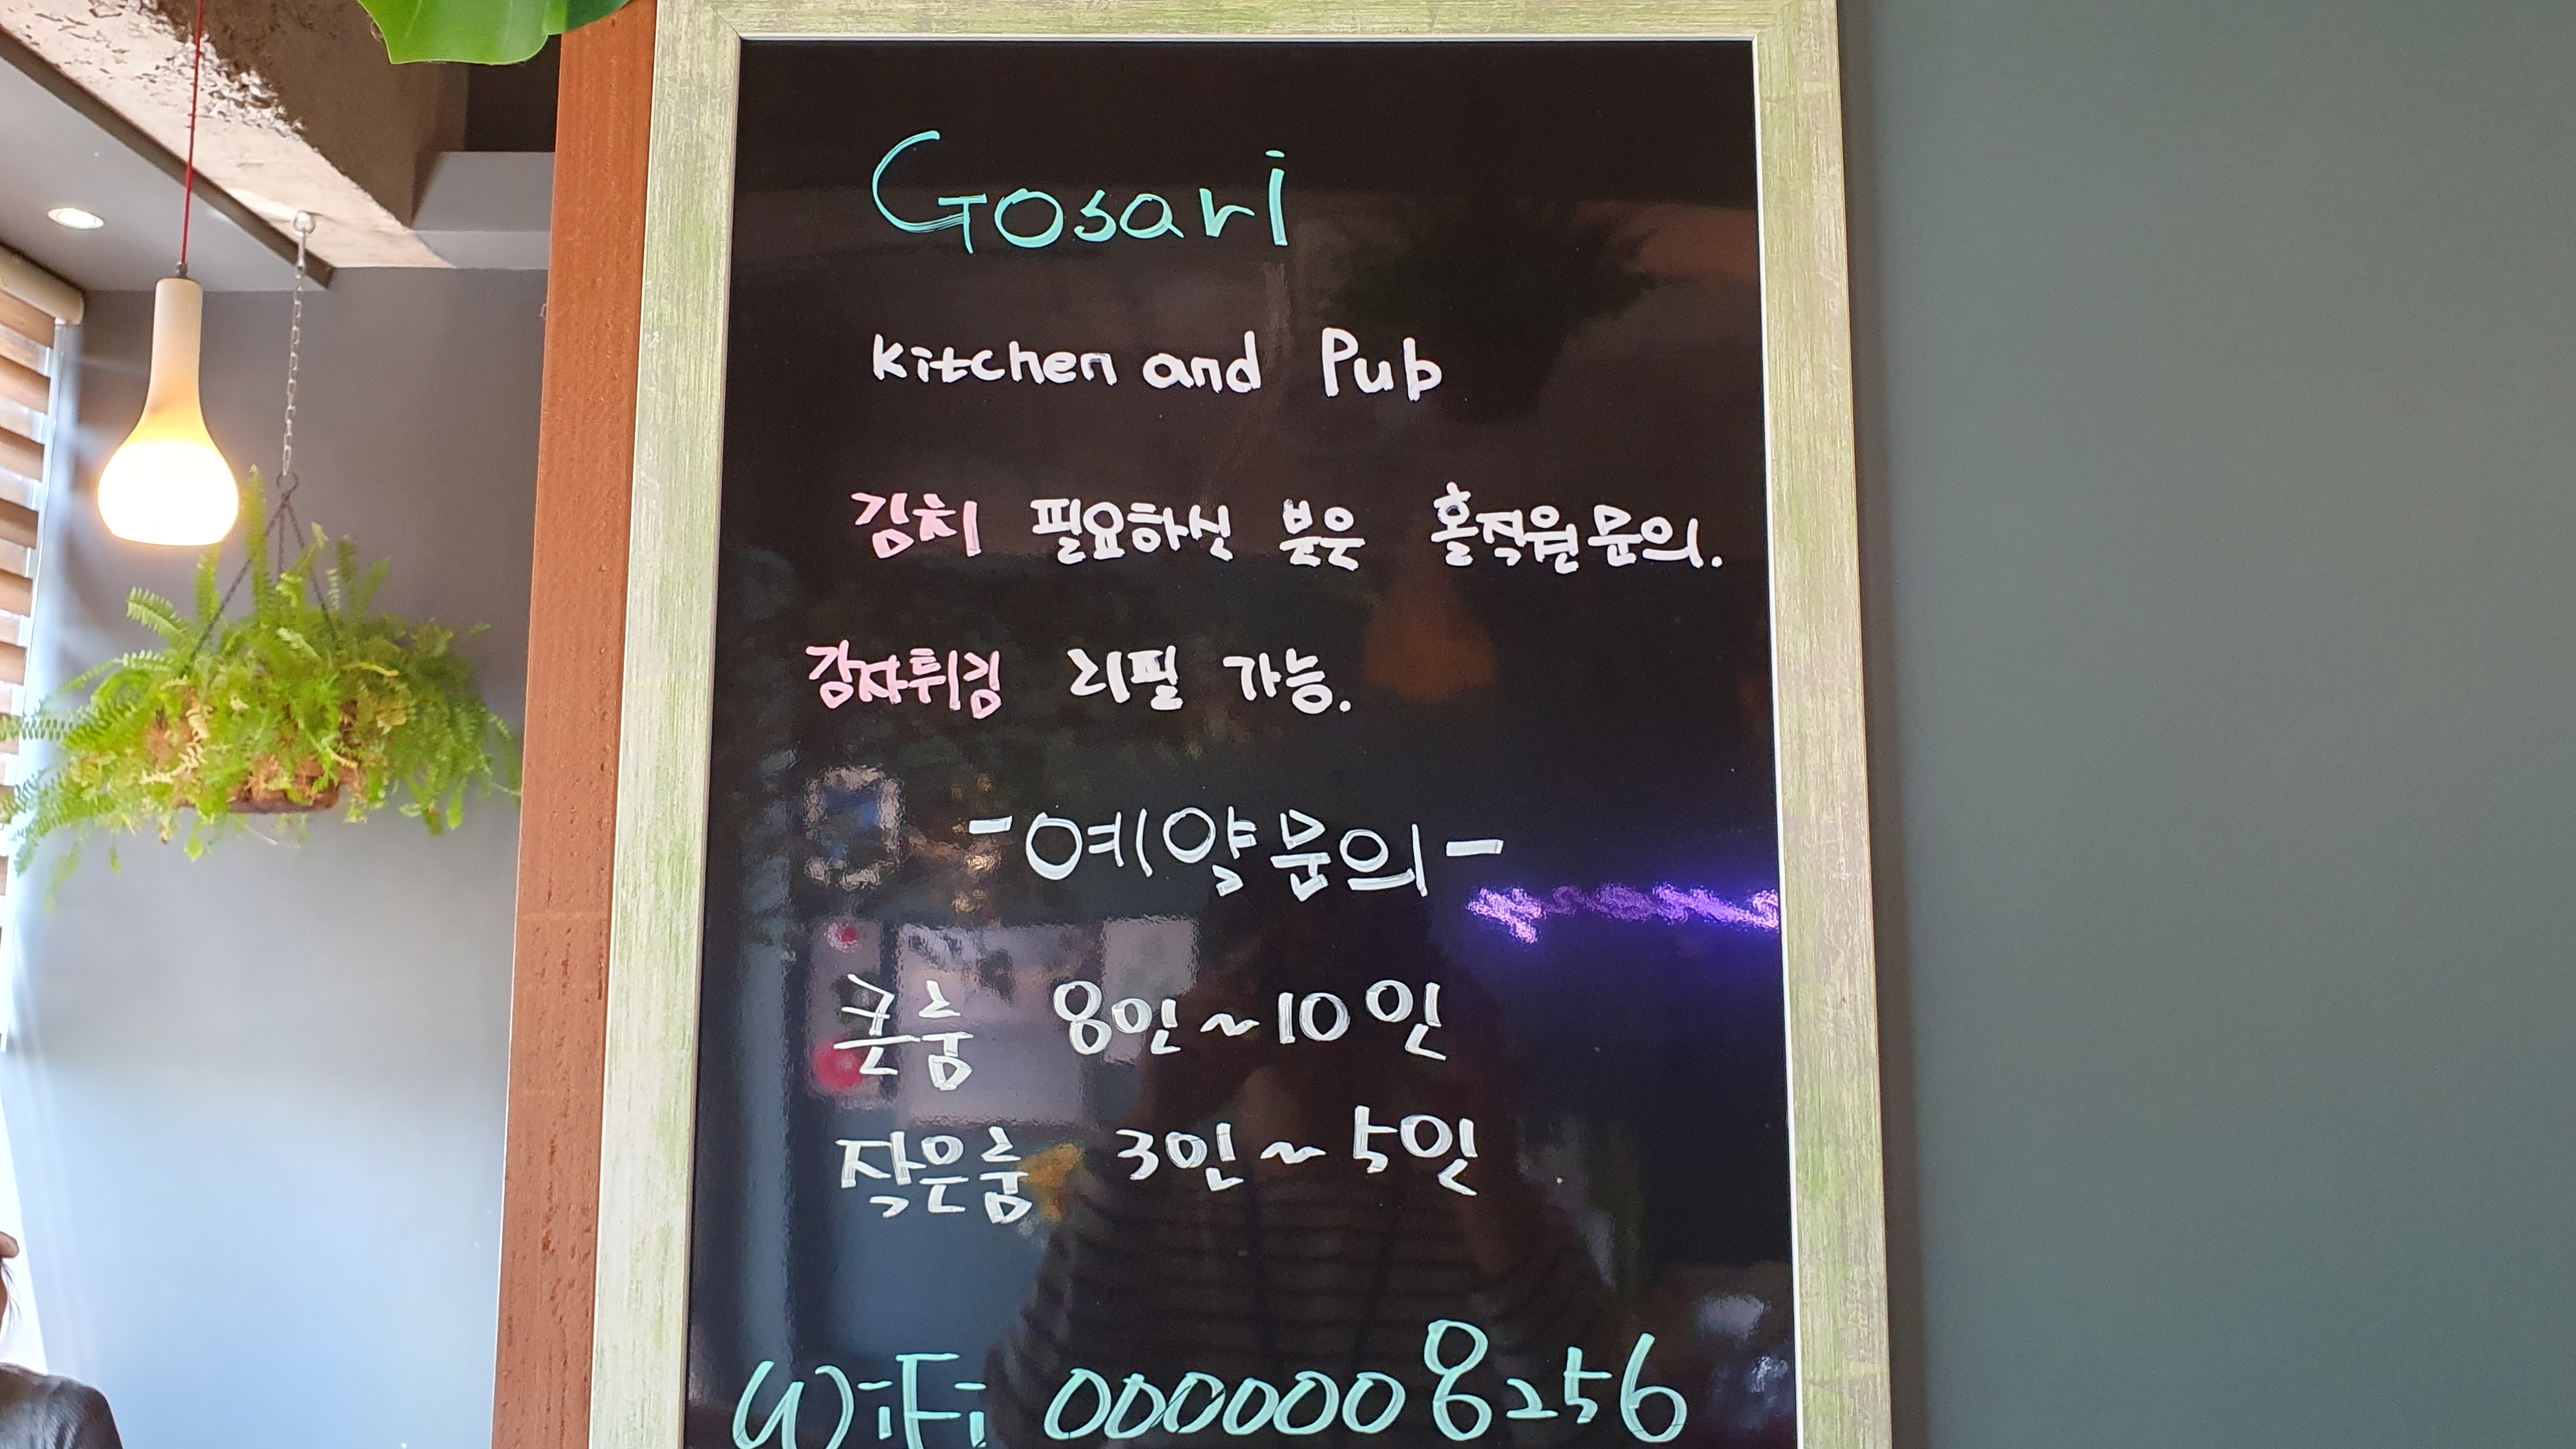 Gosari
kitchen and Pub
김치 필요하신 분은 홀직원문의.
감자튀김 리필 가능.
-예약문의-
큰룸 8인~10인
작은룸 3인~5인
WiFi 0000008256